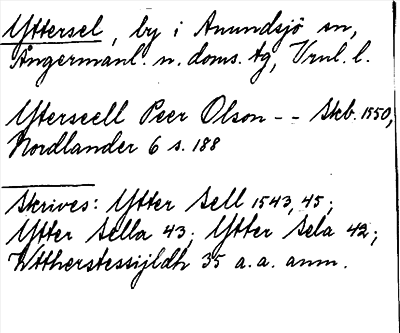 Yttersel, by i Anundsjö sn,
Ångermanl. n. doms. tg, Vrnl. l.
Ytterseell Peer Olson - - Skb. 1550,
Nordlander 6 s. 188
Skrives: Ytter Sell 1543, 45;
Ytter Sella 43; Ytter Sela 42;
Wttherstessijldh 35 a. a. anm.